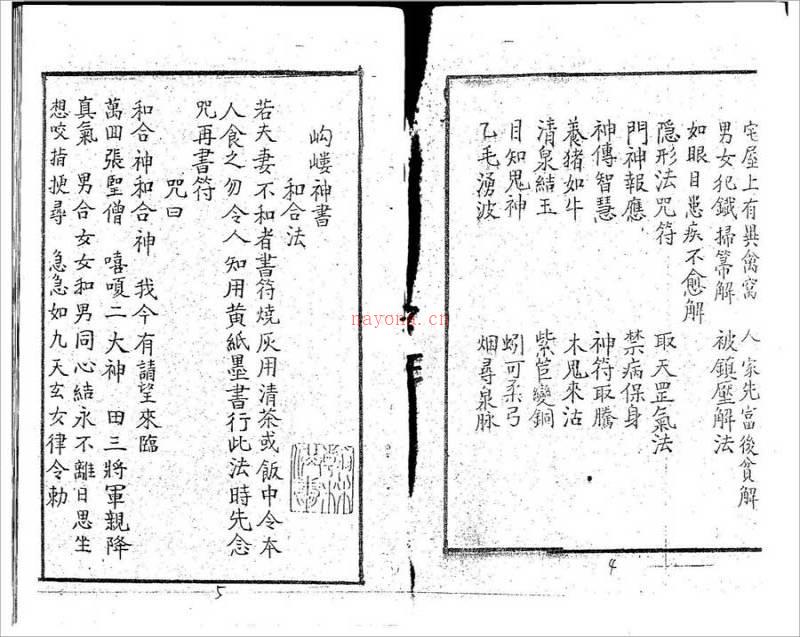 宅屋上有異禽窩 人家先富後貧解
男女犯鐵掃箒解 被鎮壓解法
如眼目患疾不愈解
隱形法咒符 取天罡氣法
門神報應 禁病保身
神傳智慧 神符取騰
養猪如牛 木鬼來沽
清泉結玉 紫苣變銅
目知鬼神 蚓可柔弓
乙毛湧波 烟尋泉脉
4
岣嶁神書
和合法
若夫妻不和者書符燒灰用清茶或飯中令本
人食之勿令人知用黄紙墨書行此法時先念
咒再書符
咒曰
和合神和合神 我今有請望來臨
萬回張聖僧 嘻嗄二大神 田三將軍親降
真氣 男合女女和男同心結永不離日思坐
想咬指挭尋 急急如九天玄女律令勅
5
nayona.cn